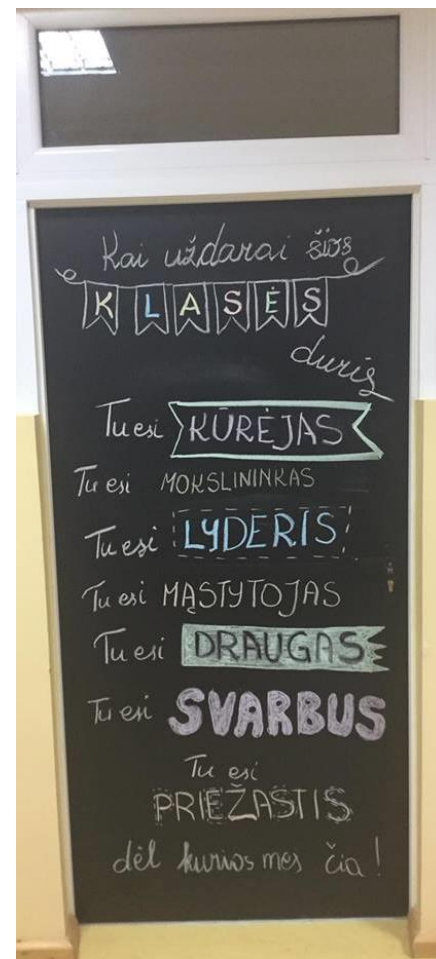 Kai uždarai šios
KLASĖS
duris
Tu esi KŪRĖJAS
Tu esi MOKSLININKAS
Tu esi LYDERIS
Tu esi MĄSTYTOJAS
Tu esi DRAUGAS
Tu esi SVARBUS
Tu esi
PRIEŽASTIS
dėl kurios mes čia!